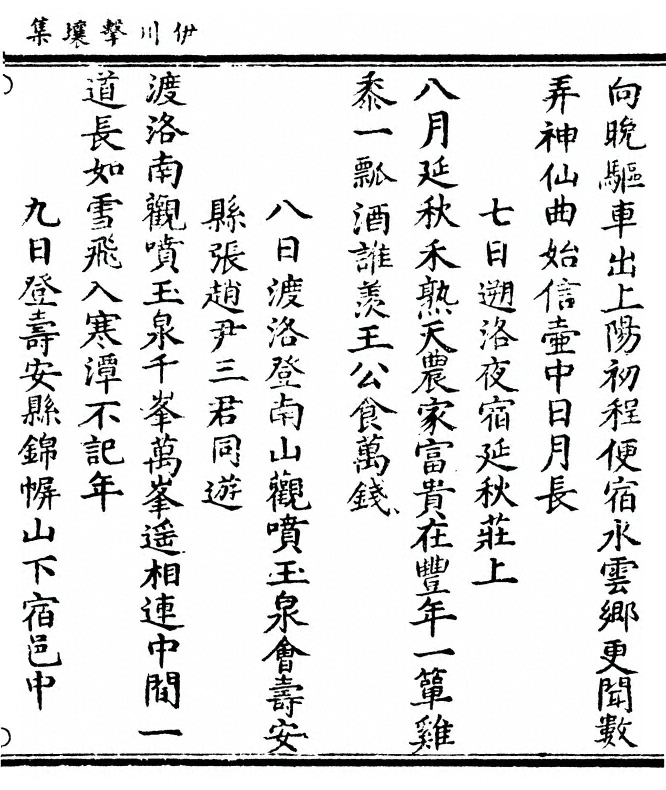 伊川擊壤集
向晚驅車出上陽初程便宿水雲鄉更聞數
弄神仙曲始信壷中日月長
七日遡洛夜宿延秋莊上
八月延秋禾熟天農家富貴在豐年一簞雞
黍一瓢酒誰羨王公食萬錢
八日渡洛登南山觀噴玉泉會壽安
縣張趙尹三君同遊
渡洛南觀噴玉泉千峯萬峯遥相連中間一
道長如雪飛入寒潭不記年
九日登壽安縣錦幈山下宿邑中